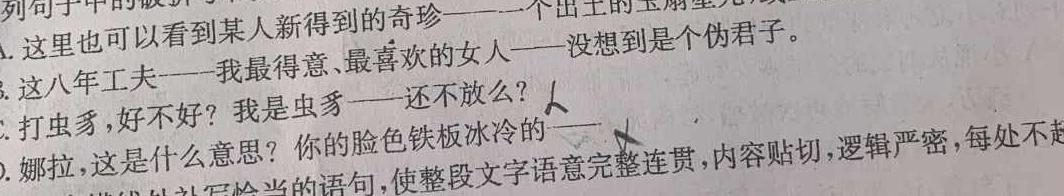 列句子中的破折
A. 这里也可以看到某人新得到的奇珍——一个出土的玉
B. 这八年工夫——我最得意、最喜欢的女人——没想到是个伪君子。
C. 打虫豸,好不好?我是虫豸——还不放么?
D. 娜拉,这是什么意思?你的脸色铁板冰冷的——
补写恰当的语句,使整段文字语意完整连贯,内容贴切,逻辑严密,每处不超